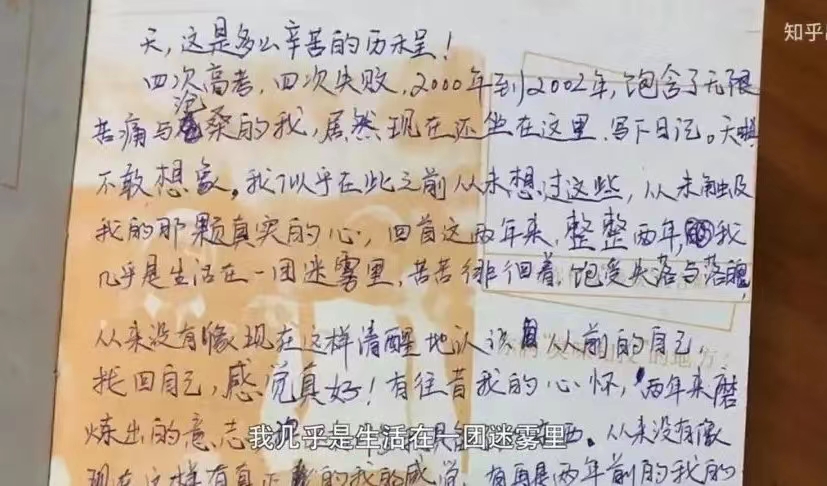 知乎
天,这是多么辛苦的历程!
四次高考,四次失败,2000年到2002年,饱含了无限
苦痛与沧桑的我,居然现在还坐在这里,写下日记。天啊
不敢想象。我似乎在此之前从未想过这些,从未触及
我的那颗真实的心,回首这两年来,整整两年,我
几乎是生活在一团迷雾里,苦苦徘徊着,饱受失落与落魄,
从来没有像现在这样清醒地认识从前的自己,
找回自己,感觉真好!有往昔我的心怀,两年来磨
炼出的意志
西。从来没有像
我几乎是生活在一团迷雾里
现在这样有真正我的我的感觉,
再是两年前的我的